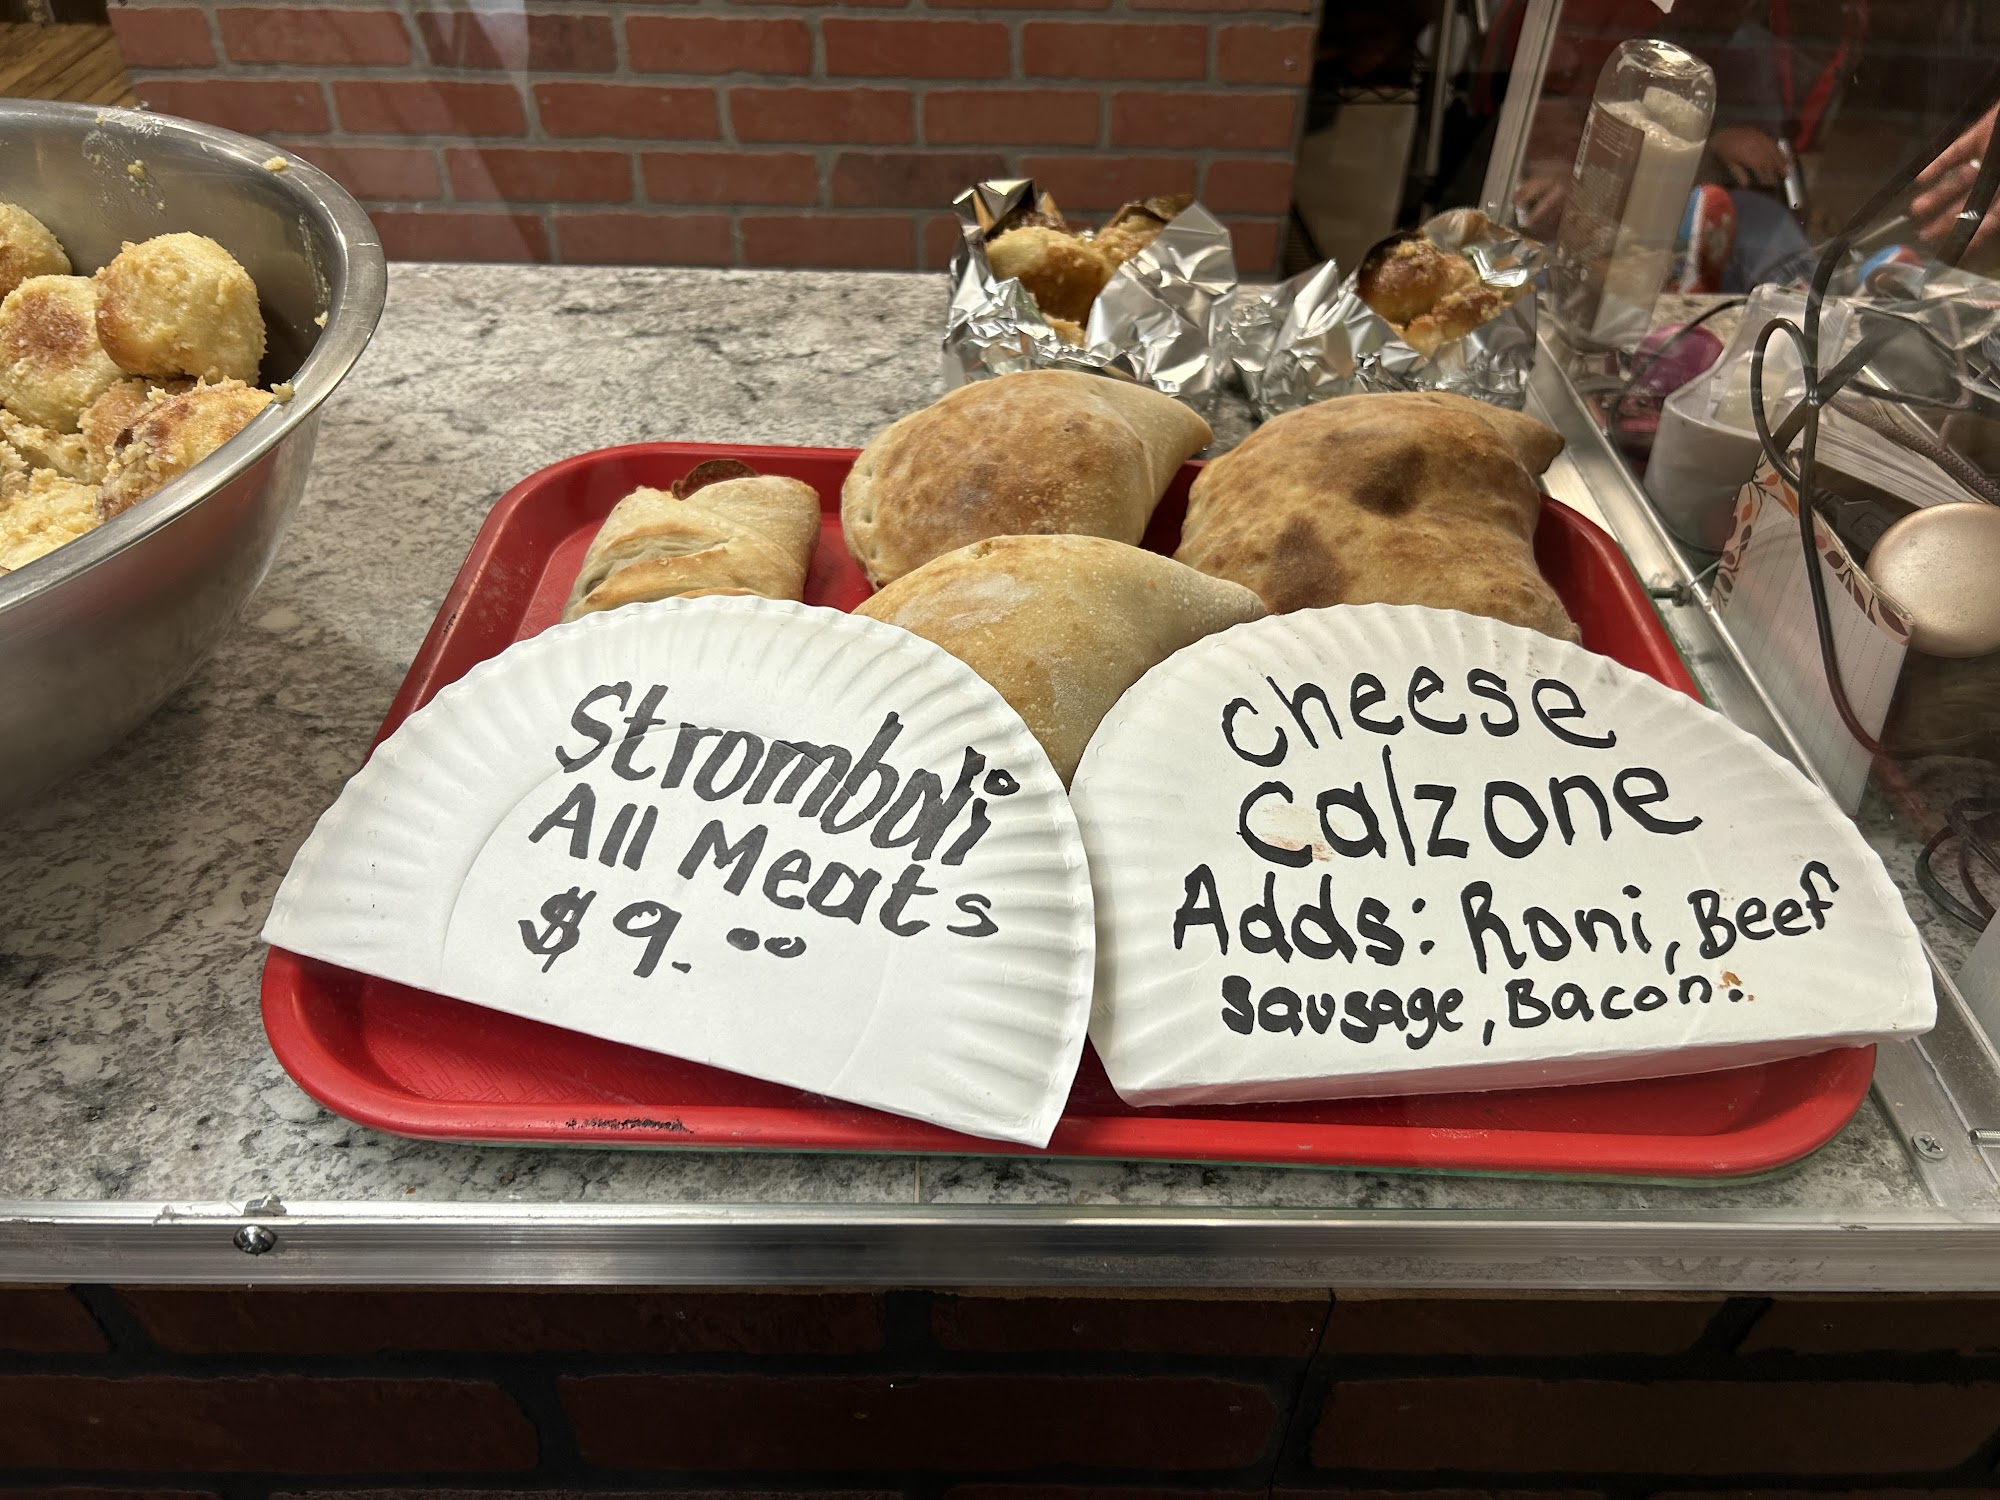 Stromboli
All Meats
$9.00
cheese
calzone
Adds: Roni, Beef
sausage, Bacon.